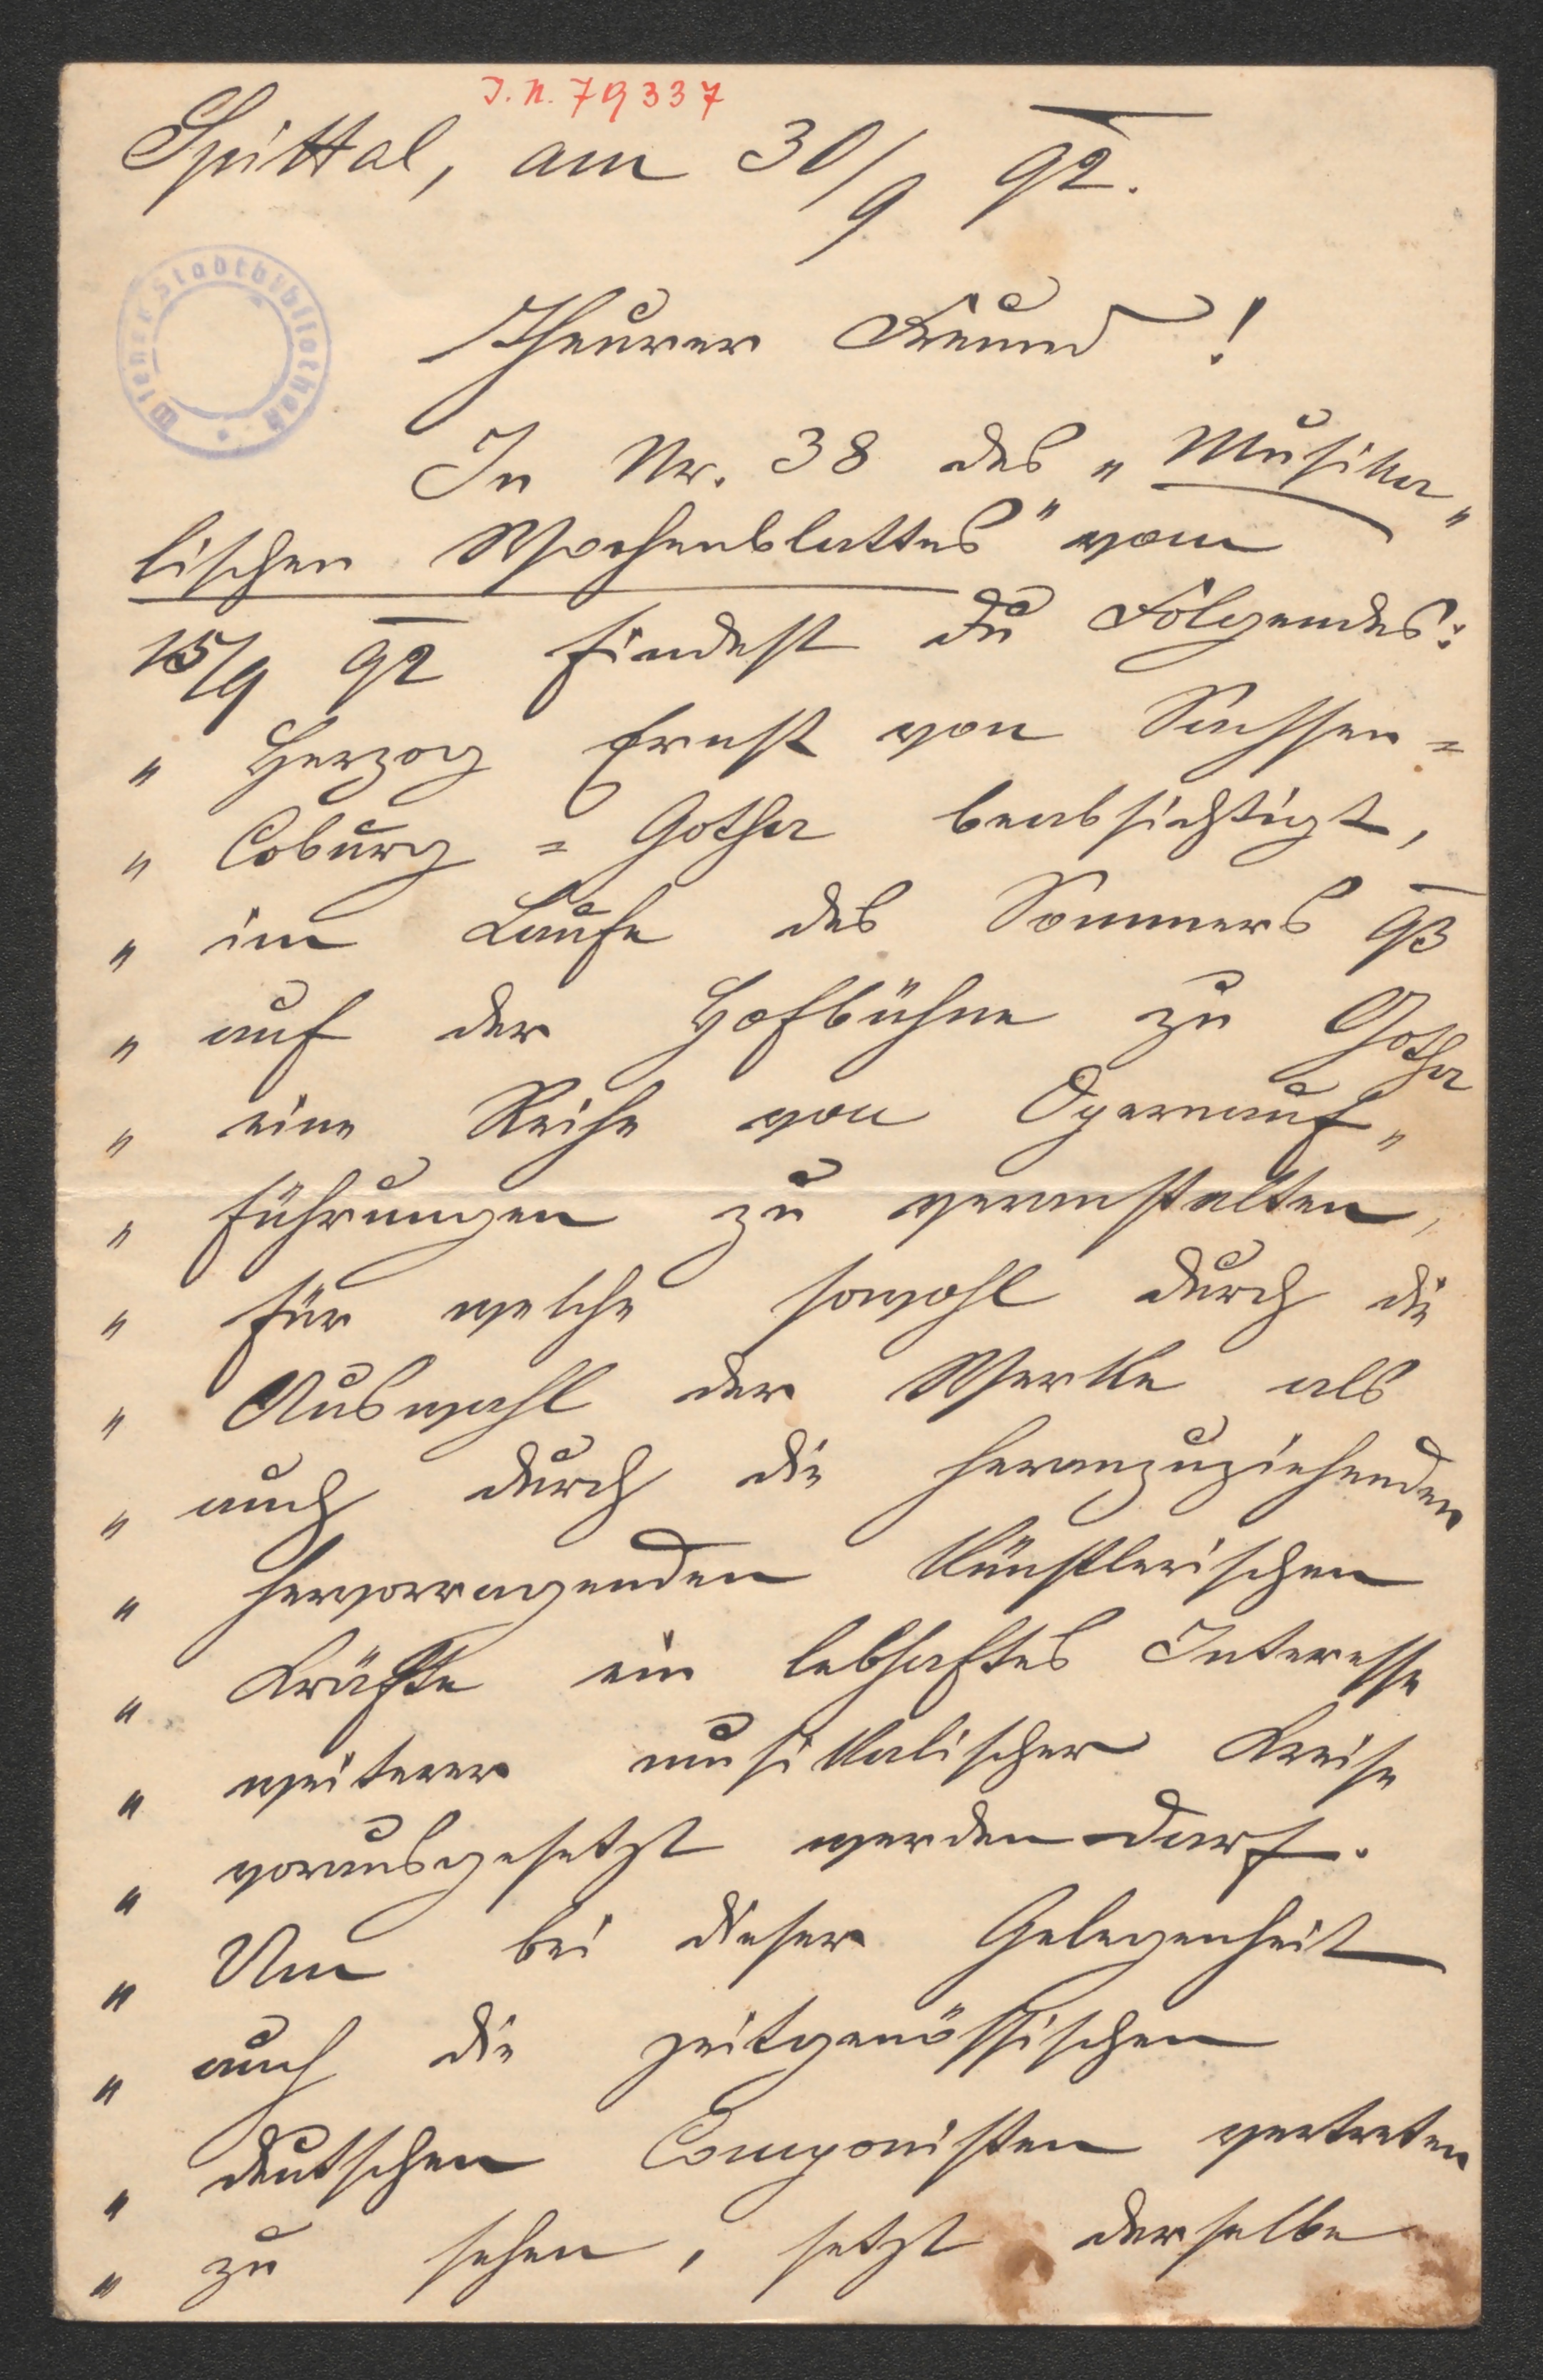 I.N. 79337
Spittal, am 30/9 92.
Wiener Stadtbibliothek
Theurer Freund!
In Nr. 38 des „Musika„
lischen Wochenblattes" vom
15/9 92 findest du Folgendes:
„ Herzog Ernst von Sachsen =
„ Coburg = Gotha beabsichtigt,
„ im Laufe des Sommers 93
„ auf der Hofbühne zu Gotha
„ eine Reihe von Opernauf„
„ führungen zu veranstalten,
„ für welche sowohl durch die
„ Auswahl der Werke als
„ auch durch die heranzuziehenden
„ hervorragenden künstlerischen
„ Kräfte ein lebhaftes Interesse
„ weiterer musikalischer Kreise
„ vorausgesetzt werden darf.
„ Um bei dieser Gelegenheit
„ auch die zeitgenössischen
„ deutschen Componisten vertreten
„ zu sehen, setzt derselbe